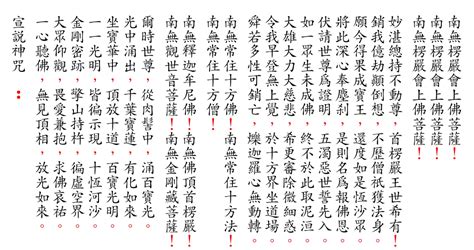 南無楞嚴會上佛菩薩!
南無楞嚴會上佛菩薩!
南無楞嚴會上佛菩薩!
妙湛總持不動尊,首楞嚴王世希有!
銷我億劫顛倒想,不歷僧祇獲法身。
願今得果成寶王,還度如是恆沙眾。
將此深心奉塵剎,是則名為報佛恩。
伏請世尊為證明,五濁惡世誓先入。
如一眾生未成佛,終不於此取泥洹。
大雄大力大慈悲,希更審除微細惑。
令我早登無上覺,於十方界坐道場。
舜若多性可銷亡,爍迦羅心無動轉!
南無常住十方佛!南無常住十方法!
南無常住十方僧!
南無釋迦牟尼佛!南無佛頂首楞嚴!
南無觀世音菩薩!南無金剛藏菩薩!
爾時世尊,從肉髻中,涌百寶光,
光中涌出,千葉寶蓮,有化如來,
坐寶華中,頂放十道,百寶光明,
一一光明,皆徧示現,十恆河沙,
金剛密跡,擎山持杵,徧虛空界,
大眾仰觀,畏愛兼抱,求佛哀祐,
一心聽佛,無見頂相,放光如來。
宣說神咒: